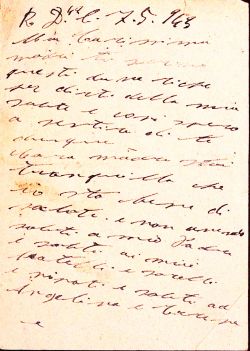 R. D. C. 7.5.943
Mia Carissima
madre ti scrivo
questi due righe
per dirti della mia
salute e così spero
a sentire di te
dunque
cara madre stai
tranquilla che
io sto bene di
salute e non
saluti a mio Padre
e saluti ai miei
fratelli e sorelle
e nipoti e saluti ad
Angelina e
e